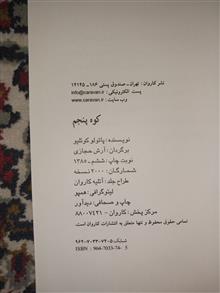 نشر کاروان: تهران - صندوق پستی ۱۸۶ - ۱۴۱۴۵
پست الکترونیکی: info@caravan.ir
وب سایت: www.caravan.ir
کوه پنجم
نویسنده: پائولو کوئلیو
برگردان: آرش حجازی
نوبت چاپ: ششم - ۱۳۸۵
شمارگان: ۲۰۰۰ نسخه
طراح جلد: آتلیه کاروان
لیتوگرافی: همپو
چاپ و صحافی: دیدآور
مرکز پخش: کاروان - ۸۸۰۰۷۴۲۱
تمامی حقوق محفوظ و تنها متعلق به انتشارات کاروان است
شابک ۵-۷۴-۷۰۳۳-۹۶۴
ISBN: 964-7033-74-5